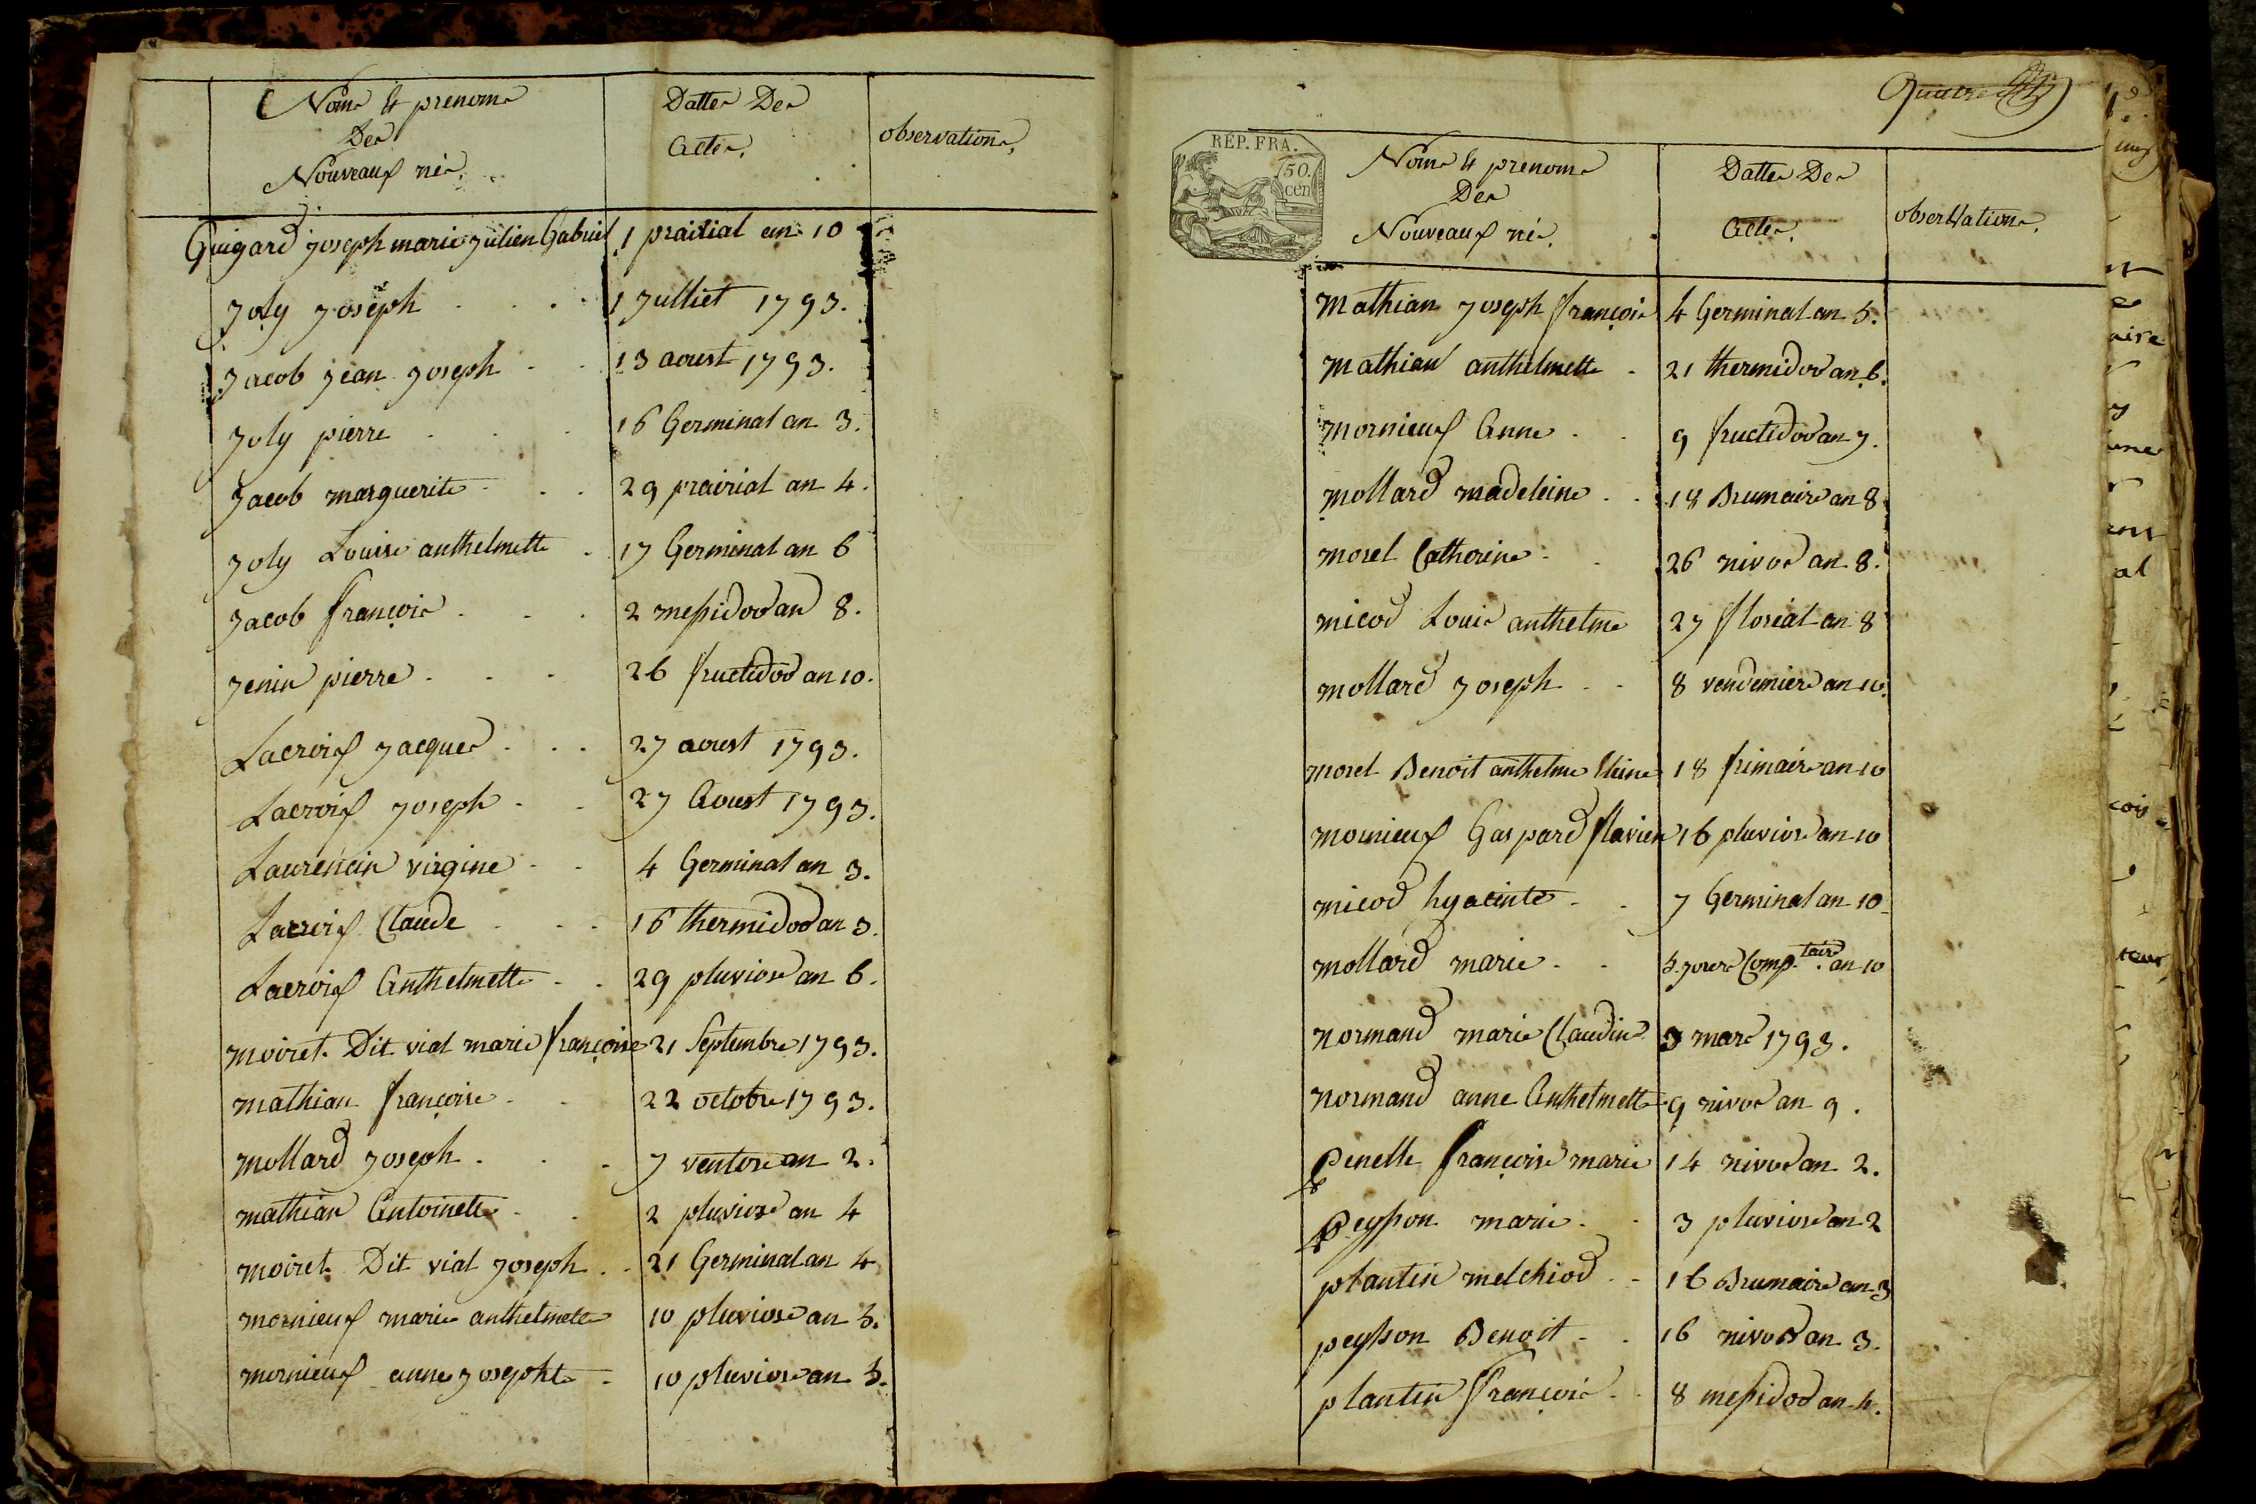 Noms & prenoms
Des
Nouveaux nés.
Dattes Des
Actes.
observations.
Guigard joseph marie julien Gabriel 1 prairial an 10
joly joseph 1 juilliet 1793.
jacob jean joseph 13 aoust 1793.
joly pierre 16 Germinal an 3.
jacob marguerite 29 prairial an 4.
joly Louise anthelmette 17 Germinal an 6
jacob françois 2 messidor an 8.
jenin pierre 26 fructidor an 10.
Lacroix jacques 27 aoust 1793.
Lacroix joseph 27 Aoust 1793.
Laurencin virgine 4 Germinal an 3.
Lacroix Claude 16 thermidor an 3.
Lacroix Anthelmette 29 pluviose an 6.
moiret Dit vial marie françoise 21 Septembre 1793.
mathian françoise 22 octobre 1793.
mollard joseph 7 ventose an 2.
mathian Antoinette 2 pluviose an 4
moiret Dit vial joseph 21 Germinal an 4
mornieux marie anthelmette 10 pluviose an 5.
mornieux anne josephte 10 pluviose an 5.
Quatre
RÉP. FRA.
50.
cen
Noms & prenoms
Des
Nouveaux nés.
Dattes Des
Actes.
observations.
mathian joseph françois 4 Germinal an 5.
mathian anthelmette 21 thermidor an 6.
mornieux Anne 9 fructidor an 7.
mollard madeleine 18 Brumaire an 8
morel Catherine 26 nivos an 8.
micod Louis anthelme 27 floreal an 8
mollard joseph 8 vendemiere an 10.
morel Benoit anthelme 18 frimaire an 10
mornieux Gaspard flavien 16 pluviose an 10
micod hyacinte 7 Germinal an 10
mollard marie 5 jours Comp.taire an 10
normand marie Claudine 3 mars 1793.
normand anne Anthelmette 9 nivos an 9.
Penelle françoise marie 14 nivos an 2.
Peysson marie 3 pluviose an 2
plantin melchiod 16 Brumaire an 3
peysson Benoit 16 nivos an 3.
plantin françois 8 messidor an 4.